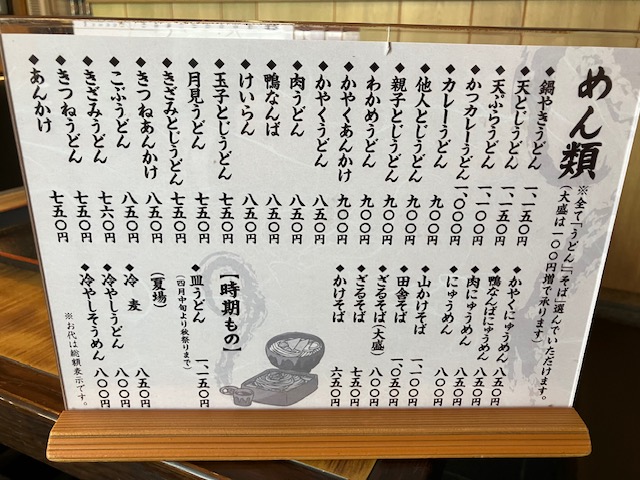 めん類
※全て「うどん」「そば」選んでいただけます。
(大盛は一〇〇円増で承ります)
◆鍋やきうどん 一、一五〇円
◆天とじうどん 一、一五〇円
◆天ぷらうどん 一、一〇〇円
◆かつカレーうどん 一、〇〇〇円
◆カレーうどん 九〇〇円
◆他人とじうどん 九〇〇円
◆親子とじうどん 九〇〇円
◆わかめうどん 九〇〇円
◆かやくあんかけ 九〇〇円
◆かやくうどん 八五〇円
◆肉うどん 八五〇円
◆鴨なんば 八五〇円
◆けいらん 八五〇円
◆玉子とじうどん 七五〇円
◆月見うどん 七五〇円
◆きざみとじうどん 七五〇円
◆きつねあんかけ 八五〇円
◆こぶうどん 八五〇円
◆きざみうどん 七六〇円
◆きつねうどん 七五〇円
◆あんかけ 七五〇円
◆かやくにゅうめん 八五〇円
◆鴨なんばにゅうめん 八五〇円
◆肉にゅうめん 八五〇円
◆にゅうめん 八〇〇円
◆山かけそば 一、一〇〇円
◆田舎そば 一、〇五〇円
◆ざるそば(大盛) 八〇〇円
◆ざるそば 七五〇円
◆かけそば 六五〇円
【時期もの】
◆皿うどん 一、一五〇円
(四月中旬より秋祭りまで)
(夏場)
◆冷麦 八五〇円
◆冷やしうどん 八〇〇円
◆冷やしそうめん 八〇〇円
※お代は総額表示です。